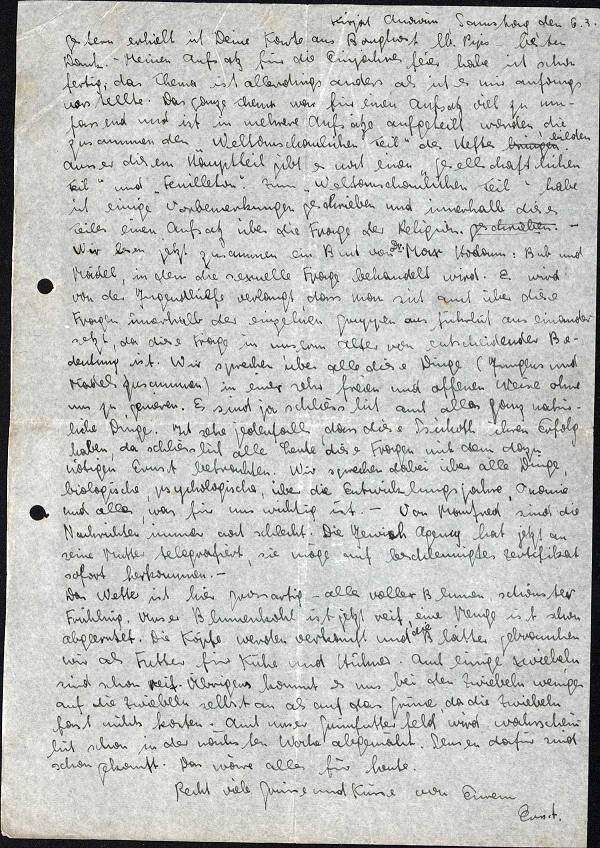 Kirjat Anavim Samstag den 6.3.
Gestern erhielt ich Deine Karte aus lb. Pips - besten
Dank. - Meinen Aufsatz für die Einjahresfeier habe ich schon
fertig, das Thema ist allerdings anders als ich es mir anfangs
vorstellte. Das ganze Thema war für einen Aufsatz viel zu um-
fassend und ist in mehrere Aufsätze aufgeteilt worden, die
zusammen den „Weltanschaulichen Teil" des Heftes bringen bilden
ausser diesem Hauptteil gibt es noch einen „gesellschaftlichen
Teil" und „Feuilleton". Zum „Weltanschaulichen Teil" habe
ich einige Vorbemerkungen geschrieben und innerhalb dieses
Teiles einen Aufsatz über die Frage der Religion geschrieben. -
Wir lesen jetzt zusammen ein Buch von Dr. Max Hodann: Bub und
Mädel, in dem die sexuelle Frage behandelt wird. Es wird
von der Jugendhilfe verlangt dass man sich auch über diese
Fragen innerhalb der einzelnen Gruppen ausführlich auseinander
setzt, da diese Frage in unserm Alter von entscheidender Be-
deutung ist. Wir sprechen über alle diese Dinge (Jungens und
Mädels zusammen) in einer sehr freien und offenen Weise ohne
uns zu genieren. Es sind ja schliesslich auch alles ganz natür-
liche Dinge. Ich sehe jedenfalls, dass diese ihren Erfolg
haben, da schliesslich alle Leute diese Fragen mit dem dazu
nötigen Ernst betrachten. Wir sprechen dabei über alle Dinge,
biologische, psychologische, über die Entwicklungsjahre, Onanie
und alles, was für uns wichtig ist. - Von Manfred sind die
Nachrichten immer noch schlecht. Die Jewish Agency hat jetzt an
seine Mutter telegrafiert, sie möge auf beschleunigtes Zertifikat
sofort herkommen. -
Das Wetter ist hier grossartig - alles voller Blumen schönster
Frühling. Unser Blumenkohl ist jetzt reif, eine Menge ist schon
abgeerntet. Die Köpfe werden verkauft und die Blätter gebrauchen
wir als Futter für Kühe und Hühner. Auch einige Zwiebeln
sind schon reif. Übrigens kommt es uns bei den Zwiebeln weniger
auf die Zwiebeln selbst an als auf das grüne, da die Zwiebeln
fast nichts kosten. - Auch unser Grünfutterfeld wird wahrschein
lich schon in der nächsten Woche abgemäht. Sensen dafür sind
schon gekauft. Das wäre alles für heute.
Recht viele Grüsse und Küsse von Eurem
Ernst.